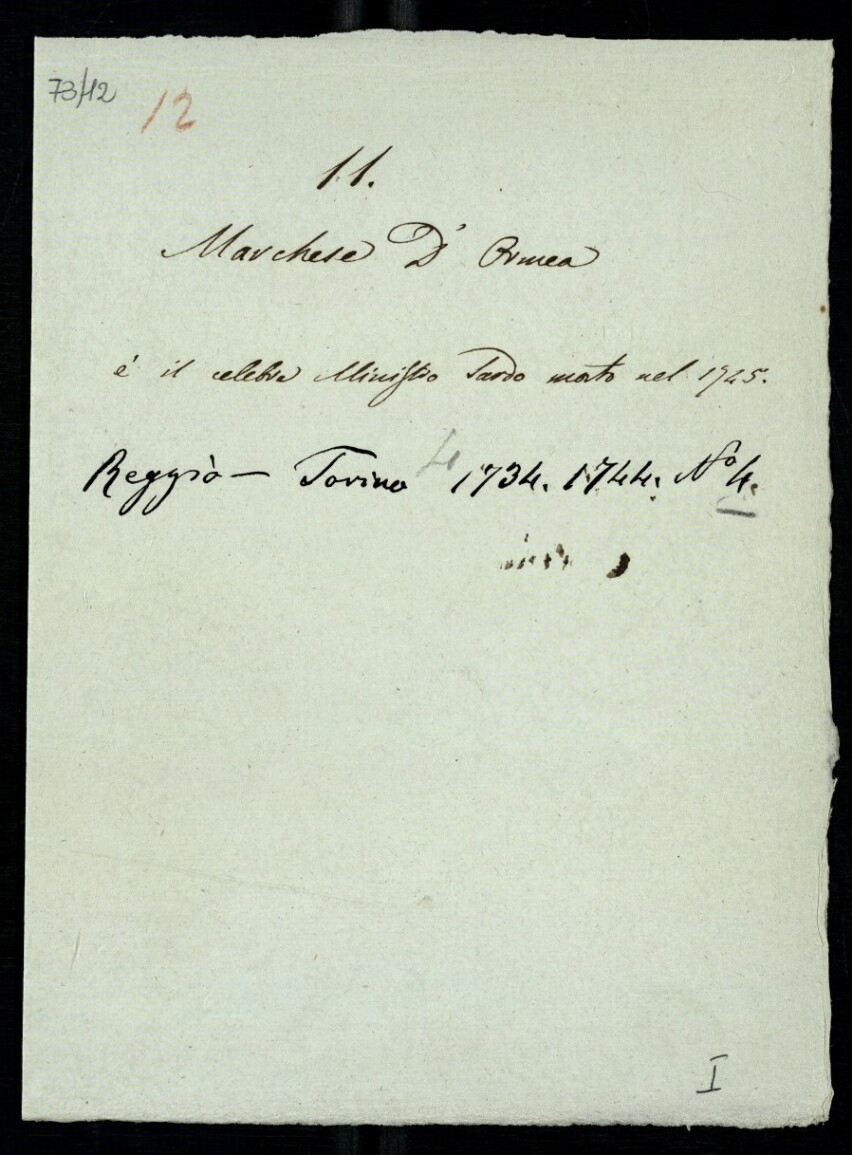 73/12
12
11.
Marchese D' Ormea
é il celebre Ministro Sardo morto nel 1745.
Reggio — Torino 4 1734. 1744. Nº 4.
I